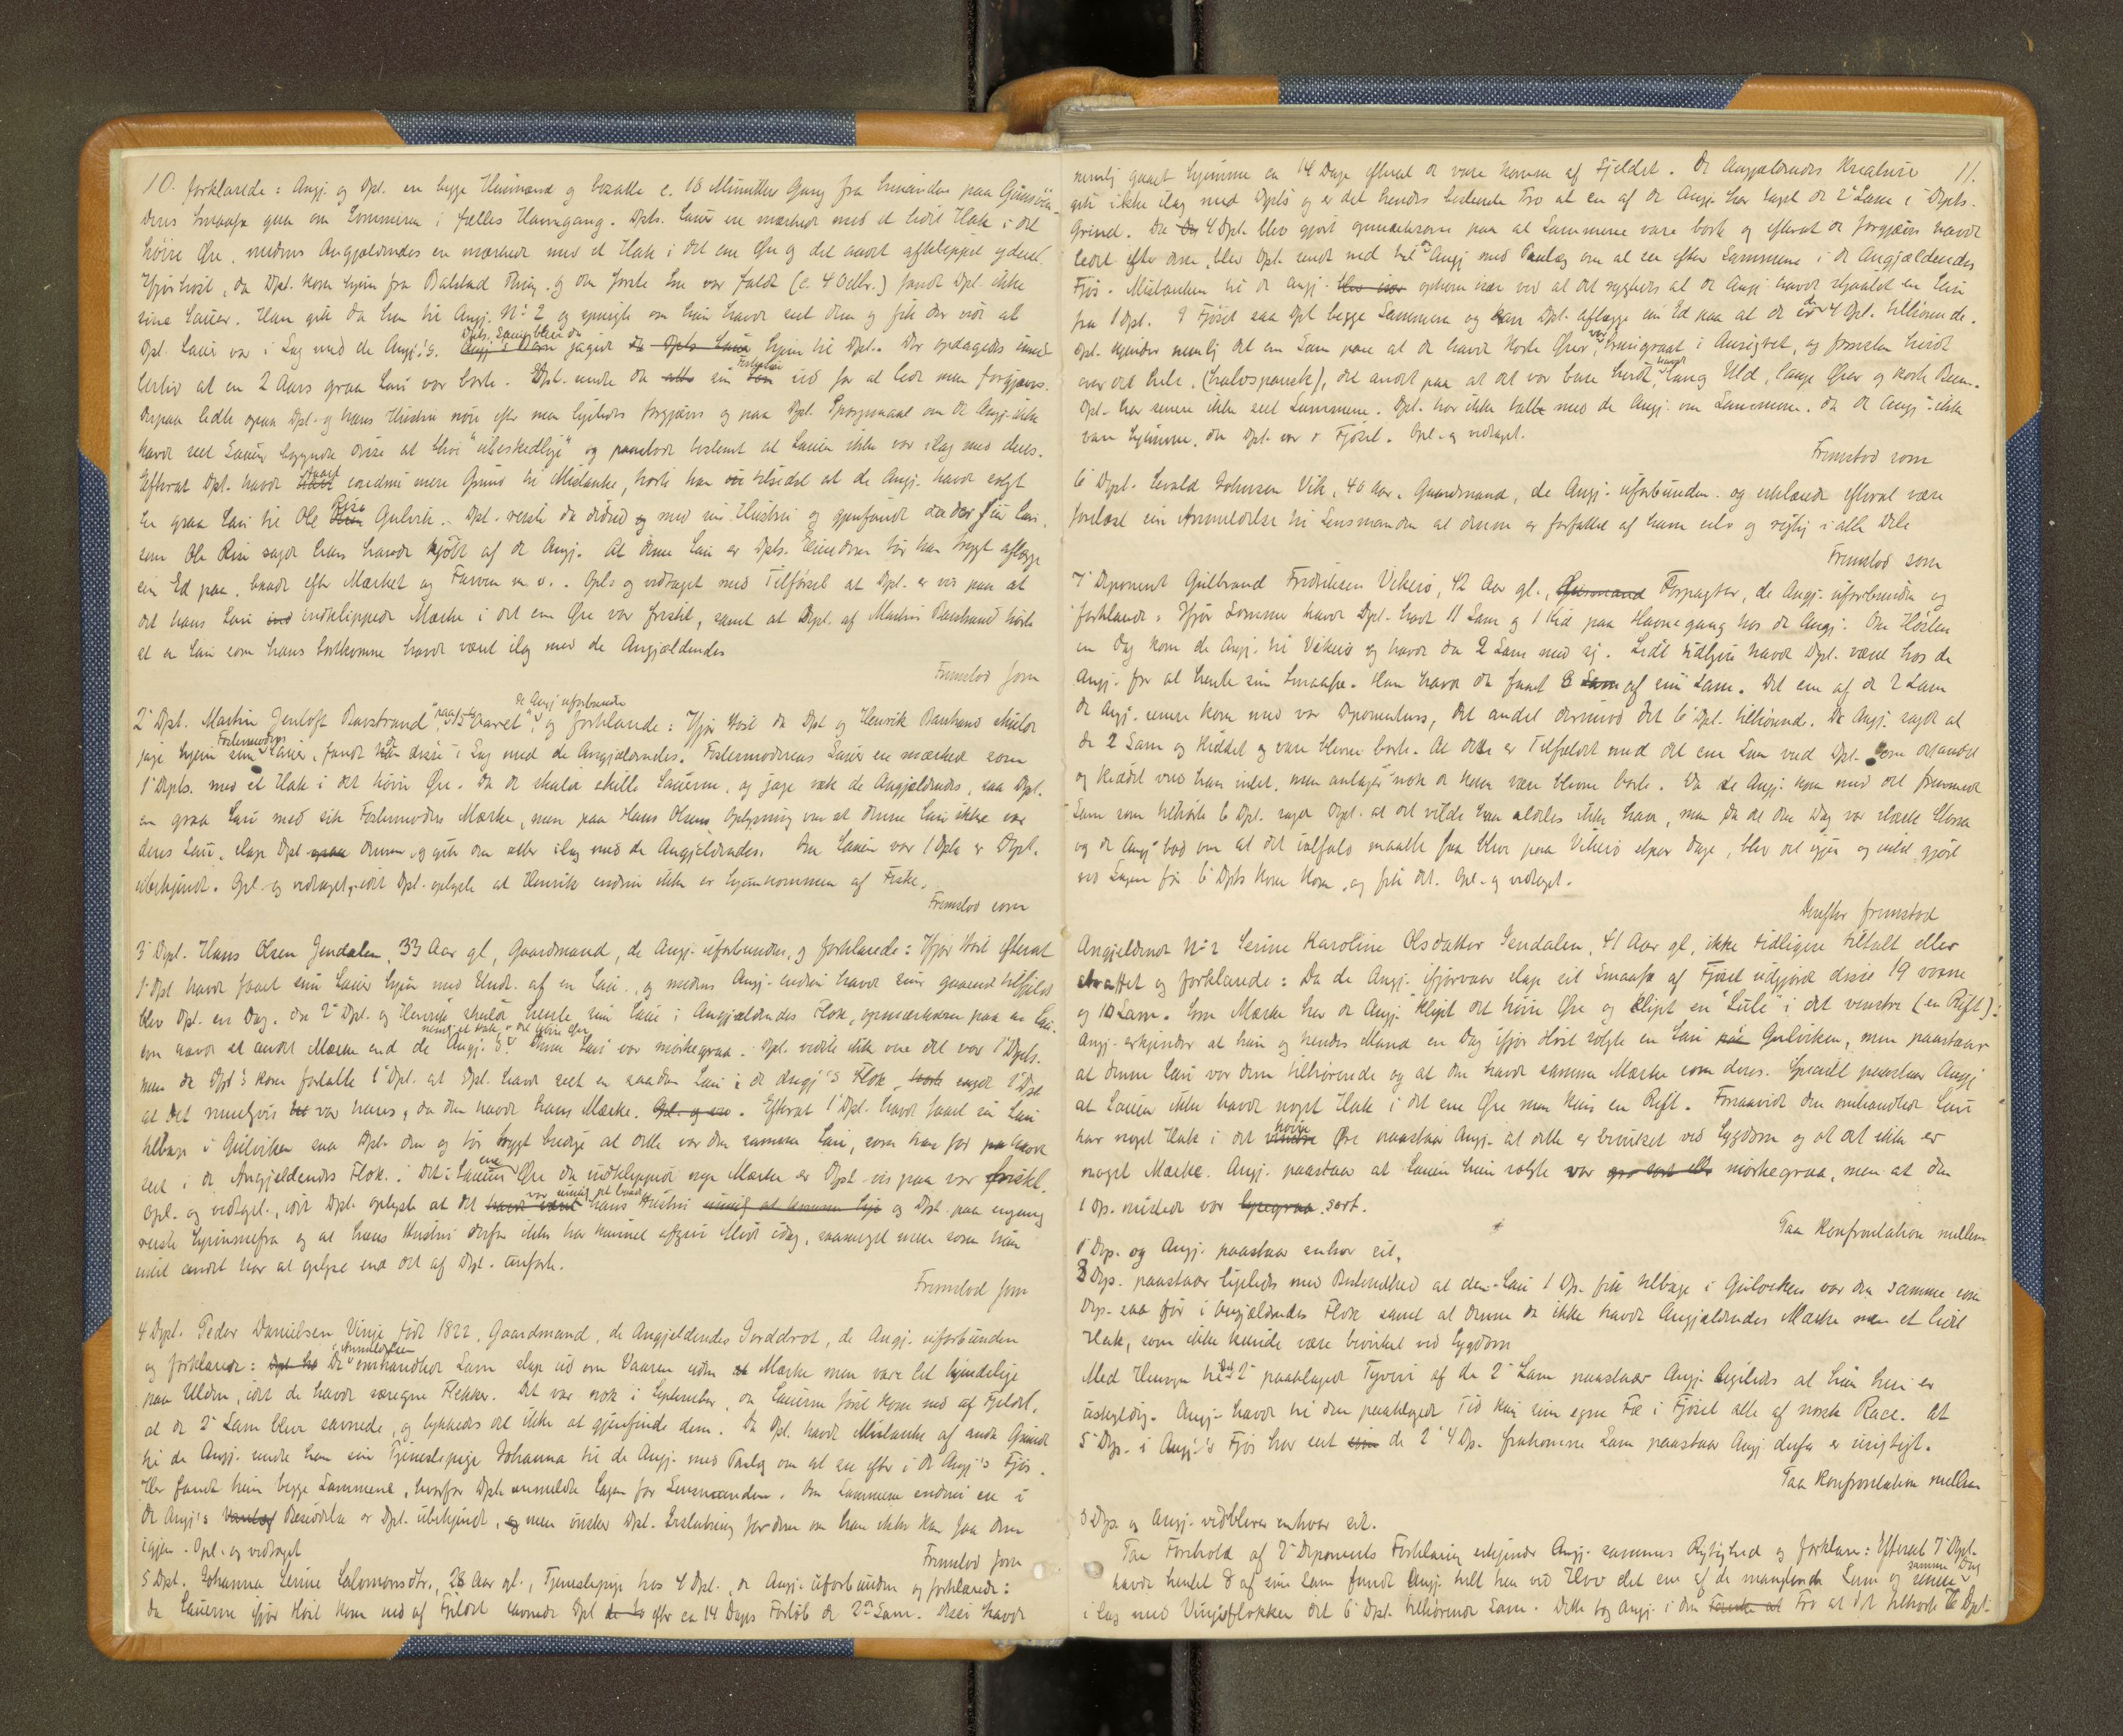 10. forklarede: Angj. og Dpt. ere begge Husmænd og bosatte c. 15 Minutters Gang fra hinanden paa Gimsö
deres Smaafæ gaar om Sommeren i fælles Havnegang. Dpts. Sauer ere mærkede med et lidet Hak i det
høire Øre, medens Angjældendes ere mærkede med et Hak i det ene Øre og det andet afklippet yderst.
Ifjorhøst, da Dpt. kom hjem fra Balstad Thing og den første Sne var faldt (c. 4 Octbr.) fandt Dpt. ikke
sine Sauer. Han gik da hen til Angj. No 2 og spurgte om hun havde seet dem og fik der vide at
Dpts. Sauer blev da
Dpt. Sauer var i Lag med de Angj.'s. jaget hjem til Dpt. Der opdagedes imid-
lertid at en 2 Aars graa Sau var borte. Dpt. sendte da sin Fostersøn ud for at lede men forgjæves.
Derpaa ledte ogsaa Dpt. og hans Hustru nøie efter men ligeledes forgjæves og paa Dpt. Spørgsmaal om de Angj. ikke
havde seet Sauen begyndte disse at blive "ubeskedlige" og paastode bestemt at Sauen ikke var ilag med deres.
Efterat Dpt. havde faaet endnu mere Grund til Mistanke, hørte han tilsidst at de Angj. havde solgt
en graa Sau til Ole Risø Gulvik. Dpt. reiste da didhen med sin Hustru og gjenfandt da der sin Sau,
som Ole Risø sagde hans havde kjøbt af de Angj. At denne Sau er Dpts. Eiendom tør han trygt aflægge
sin Ed paa, baade efter Mærket og Farven m. v. Opl. og vedtaget med Tilføisel at Dpt. er vis paa at
det hans Sau indklippede Mærke i det ene Øre var friskt, samt at Dpt. af Martin Ravstrand hørte
at en Sau som hans bortkomne havde været ilag med de Angjældendes
Fremstod som
de Angj uforbunden
2 Dpt. Martin Jentoft Ravstrand, 15 Aaret, og forklarede: Ifjor Høst da Dpt og Henrik Ravstrand skulde
jage hjem sin Fostermoders Sauer, fandt de disse i Lag med de Angjældendes. Fostermoderens Sauer ere mærkede som
1 Dpts. med et Hak i det høire Øre. Da de skulde skille Sauerne, og jage væk de Angjældendes, saa Dpt.
en graa Sau med sin Fostermoders Mærke, men paa Hans Olsens Oplysning om at denne Sau ikke var
deres Sau, slap Dpt. denne og gik den atter ilag med de Angjældendes. Om Sauen var 1 Dpts er Dpt.
ubekjendt. Opl. og vedtaget, idet Dpt. oplyste at Henrik endnu ikke er hjemkommen af Fiske.
Fremstod som
3 Dpt. Hans Olsen Jendalen, 33 Aar gl, Gaardmand, de Angj. uforbunden, og forklarede: Ifjor Høst efterat
1 Dpt havde faaet sine Sauer hjem med Undt. af en Sau, og medens Angj. endnu havde sine gaaende tilfjelds
blev Dpt. en Dag, da 2 Dpt. og Henrik skulde hente sine Sauer i Angjældendes Flok, opmærksom paa en Sau
nemlig et Hak i det høire Øre
som havde et andet Mærke end de Angj.'s. Denne Sau var mørkegraa. Dpt. vidste ikke om det var 1 Dpts.
men da Dpt's kom fortalte 1 Dpt. at Dpt. havde seet en saadan Sau i de Angj's Flok, sagde 1 Dpt
at det muligvis var hans, da den havde hans Mærke. Efterat 1 Dpt. havde faaet sin Sau
tilbage i Gulviken saa Dpt. den og tør trygt bevidne at dette var den samme Sau, som han før havde
seet i de Angjeldendes Flok. Det i Sauens ene Øre da indklippede nye Mærke er Dpt. vis paa var friskt.
Opl. og vedtaget, idet Dpt. oplyste at det var hans Hustru og Dpt. paa engang
reiste hjemmefra og at hans Hustru derfor ikke har kunnet afgive Møde idag, saameget mere som hun
intet andet har at oplyse end det af Dpt. anførte.
Fremstod som
4 Dpt. Peder Danielsen Vinje født 1822, Gaardmand, de Angjeldendes Jorddrot, de Angj. uforbunden
og forklarede: De i Anmeldelsen omhandlede Lam slap ud om Vaaren uden Mærke men vare let kjendelige
paa Ulden, idet de havde særegne Flekker. Det var nok i September, da Sauerne først kom ned af Fjeldet,
at de 2 Lam blev savnede, og lykkedes det ikke at gjenfinde dem. Da Dpt. havde Mistanke af andre Grunde
til de Angj. sendte han sin Tjenestepige Johanna til de Angj. med Paalæg om at see efter i de Angj's Fjøs.
Her fandt hun begge Lammene, hvorfor Dpt. anmeldte Sagen for Lensmanden. Om Lammene endnu ere i
de Angj's Besiddelse er Dpt. ubekjendt, men ønsker Dpt. Erstatning for dem om han ikke kan faa dem
igjen. Opl. og vedtaget
Fremstod som
5 Dpt. Johanna Serine Salomonsdtr. 26 Aar gl., Tjenestepige hos 4 Dpt. de Angj. uforbunden og forklarede:
Da Sauerne ifjor Høst kom ned af Fjeldet savnede Dpt efter ca 14 Dages Forløb de 2de Lam. Disse havde
11.
nemlig gaaet hjemme ca 14 Dage efterat de vare komne af Fjeldet. De Angjældendes Kreature
gik ikke ilag med Dpts og er det hendes bestemte Tro at en af de Angj. har taget de 2 Lam i Dpts.
Grind. Da 4 Dpt. blev gjort opmærksom paa at Lammene vare borte og efterat de forgjæves havde
ledt efter dem, blev Dpt. sendt ned til de Angj med Paalæg om at see efter Lammene i de Angjældendes
Fjøs. Mistanken til de Angj. opkom især ved at det rygtedes at de Angj. havde stjaalet en Sau
fra 1 Dpt. I Fjøset saa Dpt begge Lammene og kan Dpt. aflægge sin Ed paa at de er de 4 Dpt. tilhørende.
Dpt. kjender nemlig det ene Lam paa at de havde korte Ører, var brunigraat i Ansigtet, og forresten hvidt
over det hele, (halvspansk), det andet paa at det var bare hvidt, havde lang Uld, lange Ører og korte Been.
Dpt. har senere ikke seet Lammene. Dpt. har ikke talt med de Angj. om Lammene, da de Angj. ikke
vare hjemme, da Dpt. var i Fjøset. Opl. og vedtaget.
Fremstod som
6 Dpt. Sevald Johnsen Vik, 40 Aar, Gaardmand, de Angj. uforbunden og erklærede efterat være
forelæst sin Anmeldelse til Lensmanden at denne er forfattet af ham selv og rigtig i alle Dele
Fremstod som
7 Deponent Gulbrand Fredriksen Vikeiø, 42 Aar gl., Forpagter, de Angj. uforbunden og
forklarede: Ifjor Sommer havde Dpt. havt 11 Lam og 1 Kid paa Havnegang hos de Angj. Om Høsten
en Dag kom de Angj. til Vikeiø og havde da 2 Lam med sig. Lidt tidligere havde Dpt. været hos de
Angj. for at hente sin Smaafæ. Han havde da faaet 8 af sine Lam. Det ene af de 2 Lam
de Angj. senere kom med var Deponentens, det andet derimod det 6 Dpt. tilhørende. De Angj. sagde at
de 2 Lam og Kiddet vare blevne borte. At dette er Tilfældet med det ene Lam veed Dpt. om det andet
og Kiddet veed han intet, men antager nok de kan være blevne borte. Da de Angj. kom med det fremmede
Lam som tilhørte 6 Dpt. sagde Dpt. at det vilde han aldeles ikke have, men da det den Dag var slemt
og de Angj. bad om at det ialfald maatte faa blive paa Vikeiø et par Dage, blev det igjen og intet gjort
ved Sagen før 6 Dpts Kone kom, og fik det. Opl. og vedtaget.
Derefter fremstod
Angjeldende No 2 Serine Karoline Olsdatter Jendalen, 41 Aar gl, ikke tidligere tiltalt eller
straffet og forklarede: Da de Angj. ifjorvaar slap sit Smaafæ af Fjøset udgjorde disse 19 voxne
og 10 Lam. Som Mærke har de Angj. klipt det høire Øre og klipt en "Lule" i det venstre (en Rift).
Angj. erkjender at hun og hendes Mand en Dag ifjor Høst solgte en Sau Gulviken, men paastaar
at denne Sau var dem tilhørende og at den havde samme Mærke som deres. Specielt paastaar Angj
at Sauen ikke havde noget Hak i det ene Øre men kun en Rift. Forsaavidt den omhandlede Sau
har noget Hak i det høire Øre paastaar Angj. at dette er bevirket ved Sygdom og at det ikke er
noget Mærke. Angj. paastaar at Sauen hun solgte var mørkegraa, men at den
1 Dp. mistede var sort.
Paa Konfrontation mellem
1 Dep. og Angj. paastaar enhver sit.
3 Dep. paastaar ligeledes med Bestemthed at den Sau 1 Dp. fik tilbage i Gulviken var den samme som
Dep. saa før i Angjældendes Flok samt at denne ikke havde Angjældendes Mærke men et lidet
Hak, som ikke kunde være bevirket ved Sygdom
Med Hensyn til det paaklagede Tyveri af de 2 Lam paastaar Angj. ligeledes at hun heri er
uskyldig. Angj. havde til den paaklagede Tid kun sin egne Fæ i Fjøset alle af norsk Race. At
5 Dep. i Angj's Fjøs har seet de 2 4 Dp. frakomne Lam paastaar Angj derfor er urigtigt.
Paa Konfrontation mellem
5 Dep. og Angj. vedbliver enhver sit.
Paa Forehold af 7 Deponents Forklaring erkjender Angj. sammes Rigtighed og forklarer: Efterat 7 Dpt.
havde hentet 8 af sine Lam fandt Angj. helt hen ved Hov det ene af de manglende Lam og samme Dag
i Lag med Vinjeflokken det 6 Dpt. tilhørende Lam. Dette tog Angj. i den Tro at det tilhørte 7 Dpt.